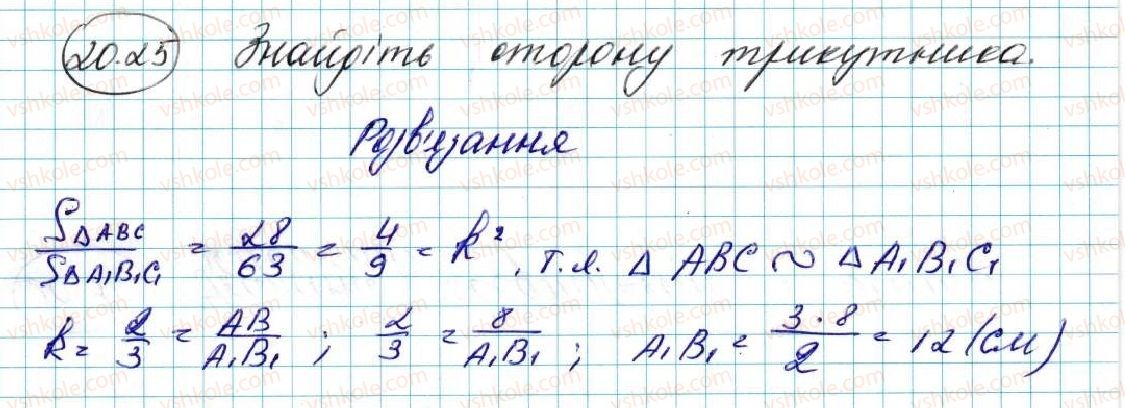 20.25 Знайдіть сторону трикутника.
Розв'язання
S△ABC / S△A₁B₁C₁ = 28/63 = 4/9 = k², т.я. △ ABC ∾ △ A₁B₁C₁
k = 2/3 = AB/A₁B₁ ; 2/3 = 8/A₁B₁ ; A₁B₁ = 3·8/2 = 12 (см)